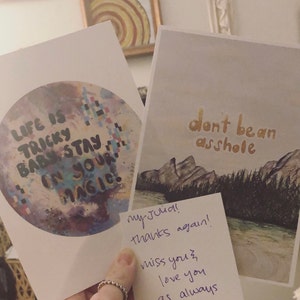 LIFE IS
TRICKY
BABY STAY
IN YOUR
MAGIC
dont be an
asshole
thanks again!
miss you &
love you
as always